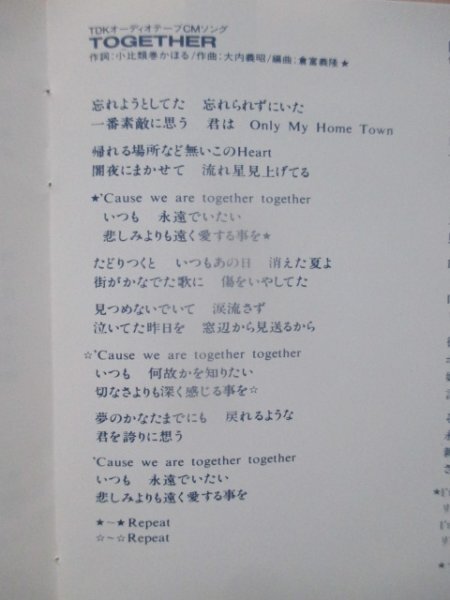 TDKオーディオテープCMソング
TOGETHER
作詞:小比類巻かほる/作曲:大内義昭/編曲:倉富義隆★
忘れようとしてた 忘れられずにいた
一番素敵に思う 君は Only My Home Town
帰れる場所など無いこのHeart
闇夜にまかせて 流れ星見上げてる
★'Cause we are together together
いつも 永遠でいたい
悲しみよりも遠く愛する事を★
たどりつくと いつもあの日 消えた夏よ
街がかなでた歌に 傷をいやしてた
見つめないでいて 涙流さず
泣いてた昨日を 窓辺から見送るから
☆'Cause we are together together
いつも 何故かを知りたい
切なさよりも深く感じる事を☆
夢のかなたまでにも 戻れるような
君を誇りに想う
'Cause we are together together
いつも 永遠でいたい
悲しみよりも遠く愛する事を
★~★Repeat
☆~☆Repeat